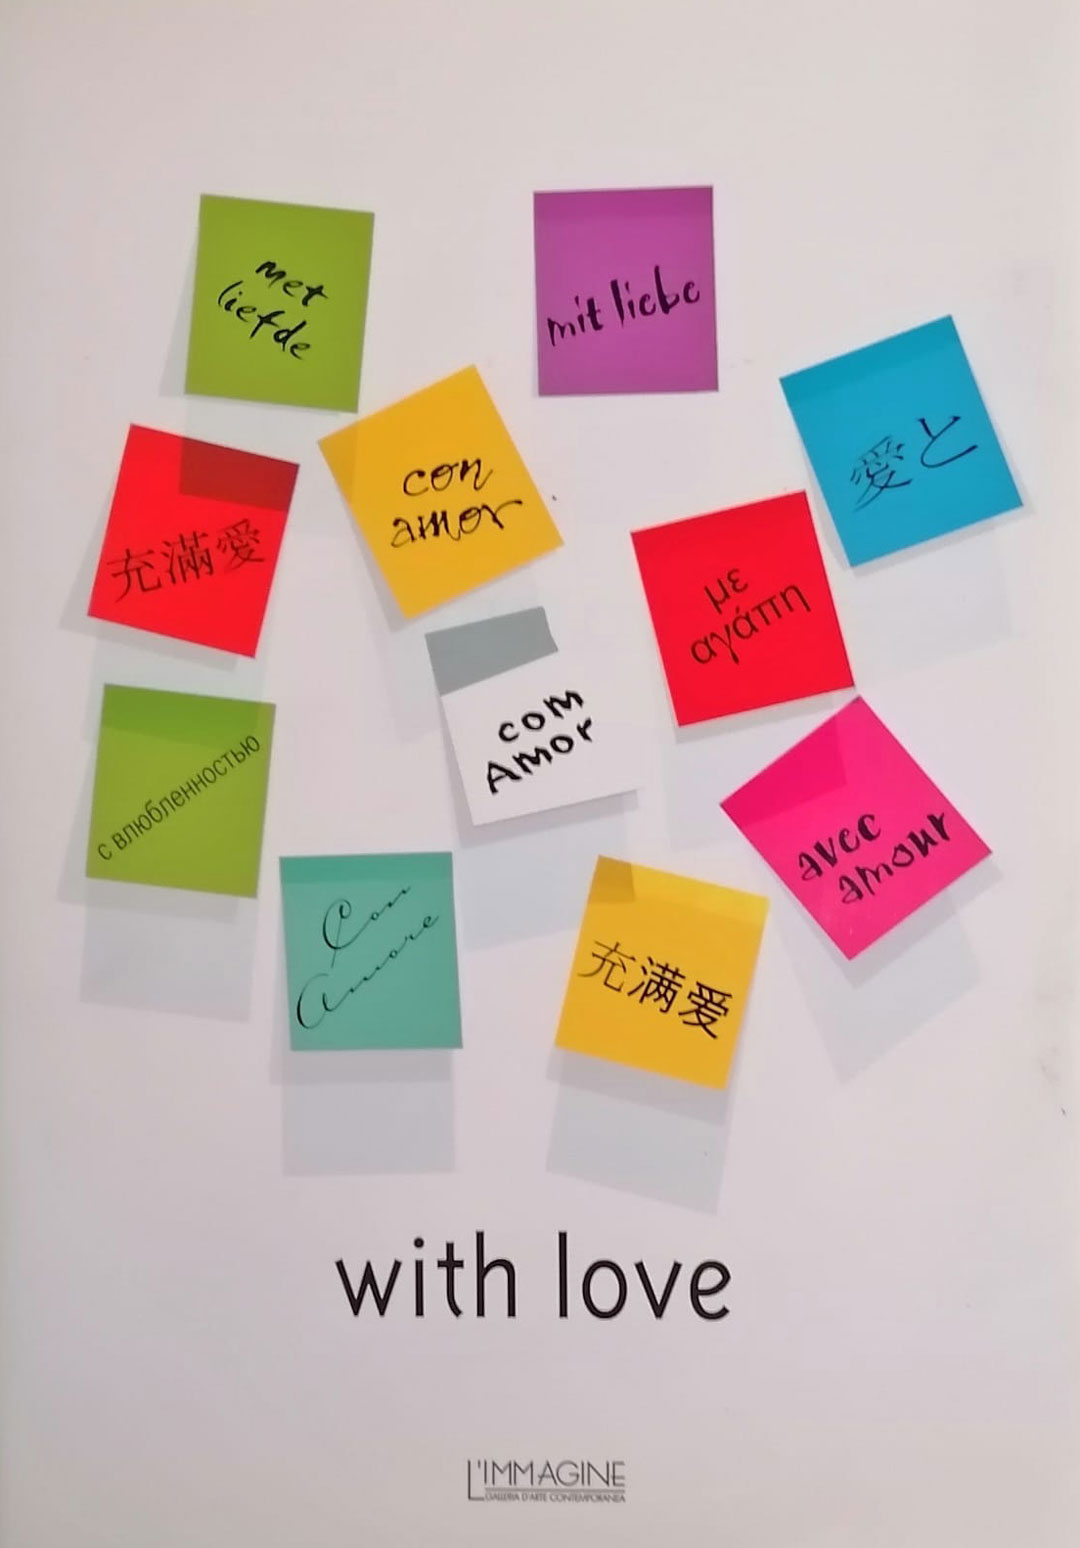 met
liefde
mit liebe
愛と
con
amor
充滿愛
με
αγάπη
com
Amor
с влюбленностью
avec
amour
Con
Amore
充满爱
with love
L'IMMAGINE
GALLERIA D'ARTE CONTEMPORANEA